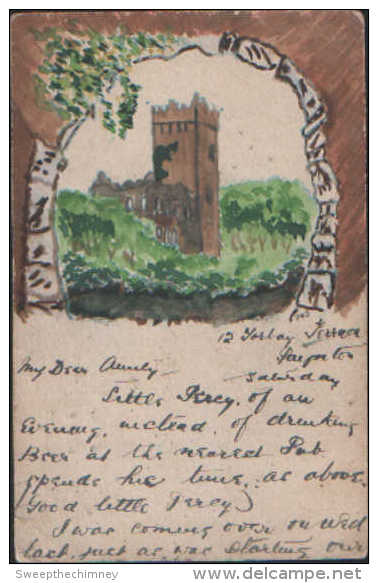 12 Torbay Terrace
Saturday
My Dear Aunty
Little Percy, of an
Evening, instead of drinking
Beer at the nearest Pub
spends his time, as above.
Good little Percy)
I was coming over on Wed
last, just as was starting our
© Sweepthechimney
delcampe.net